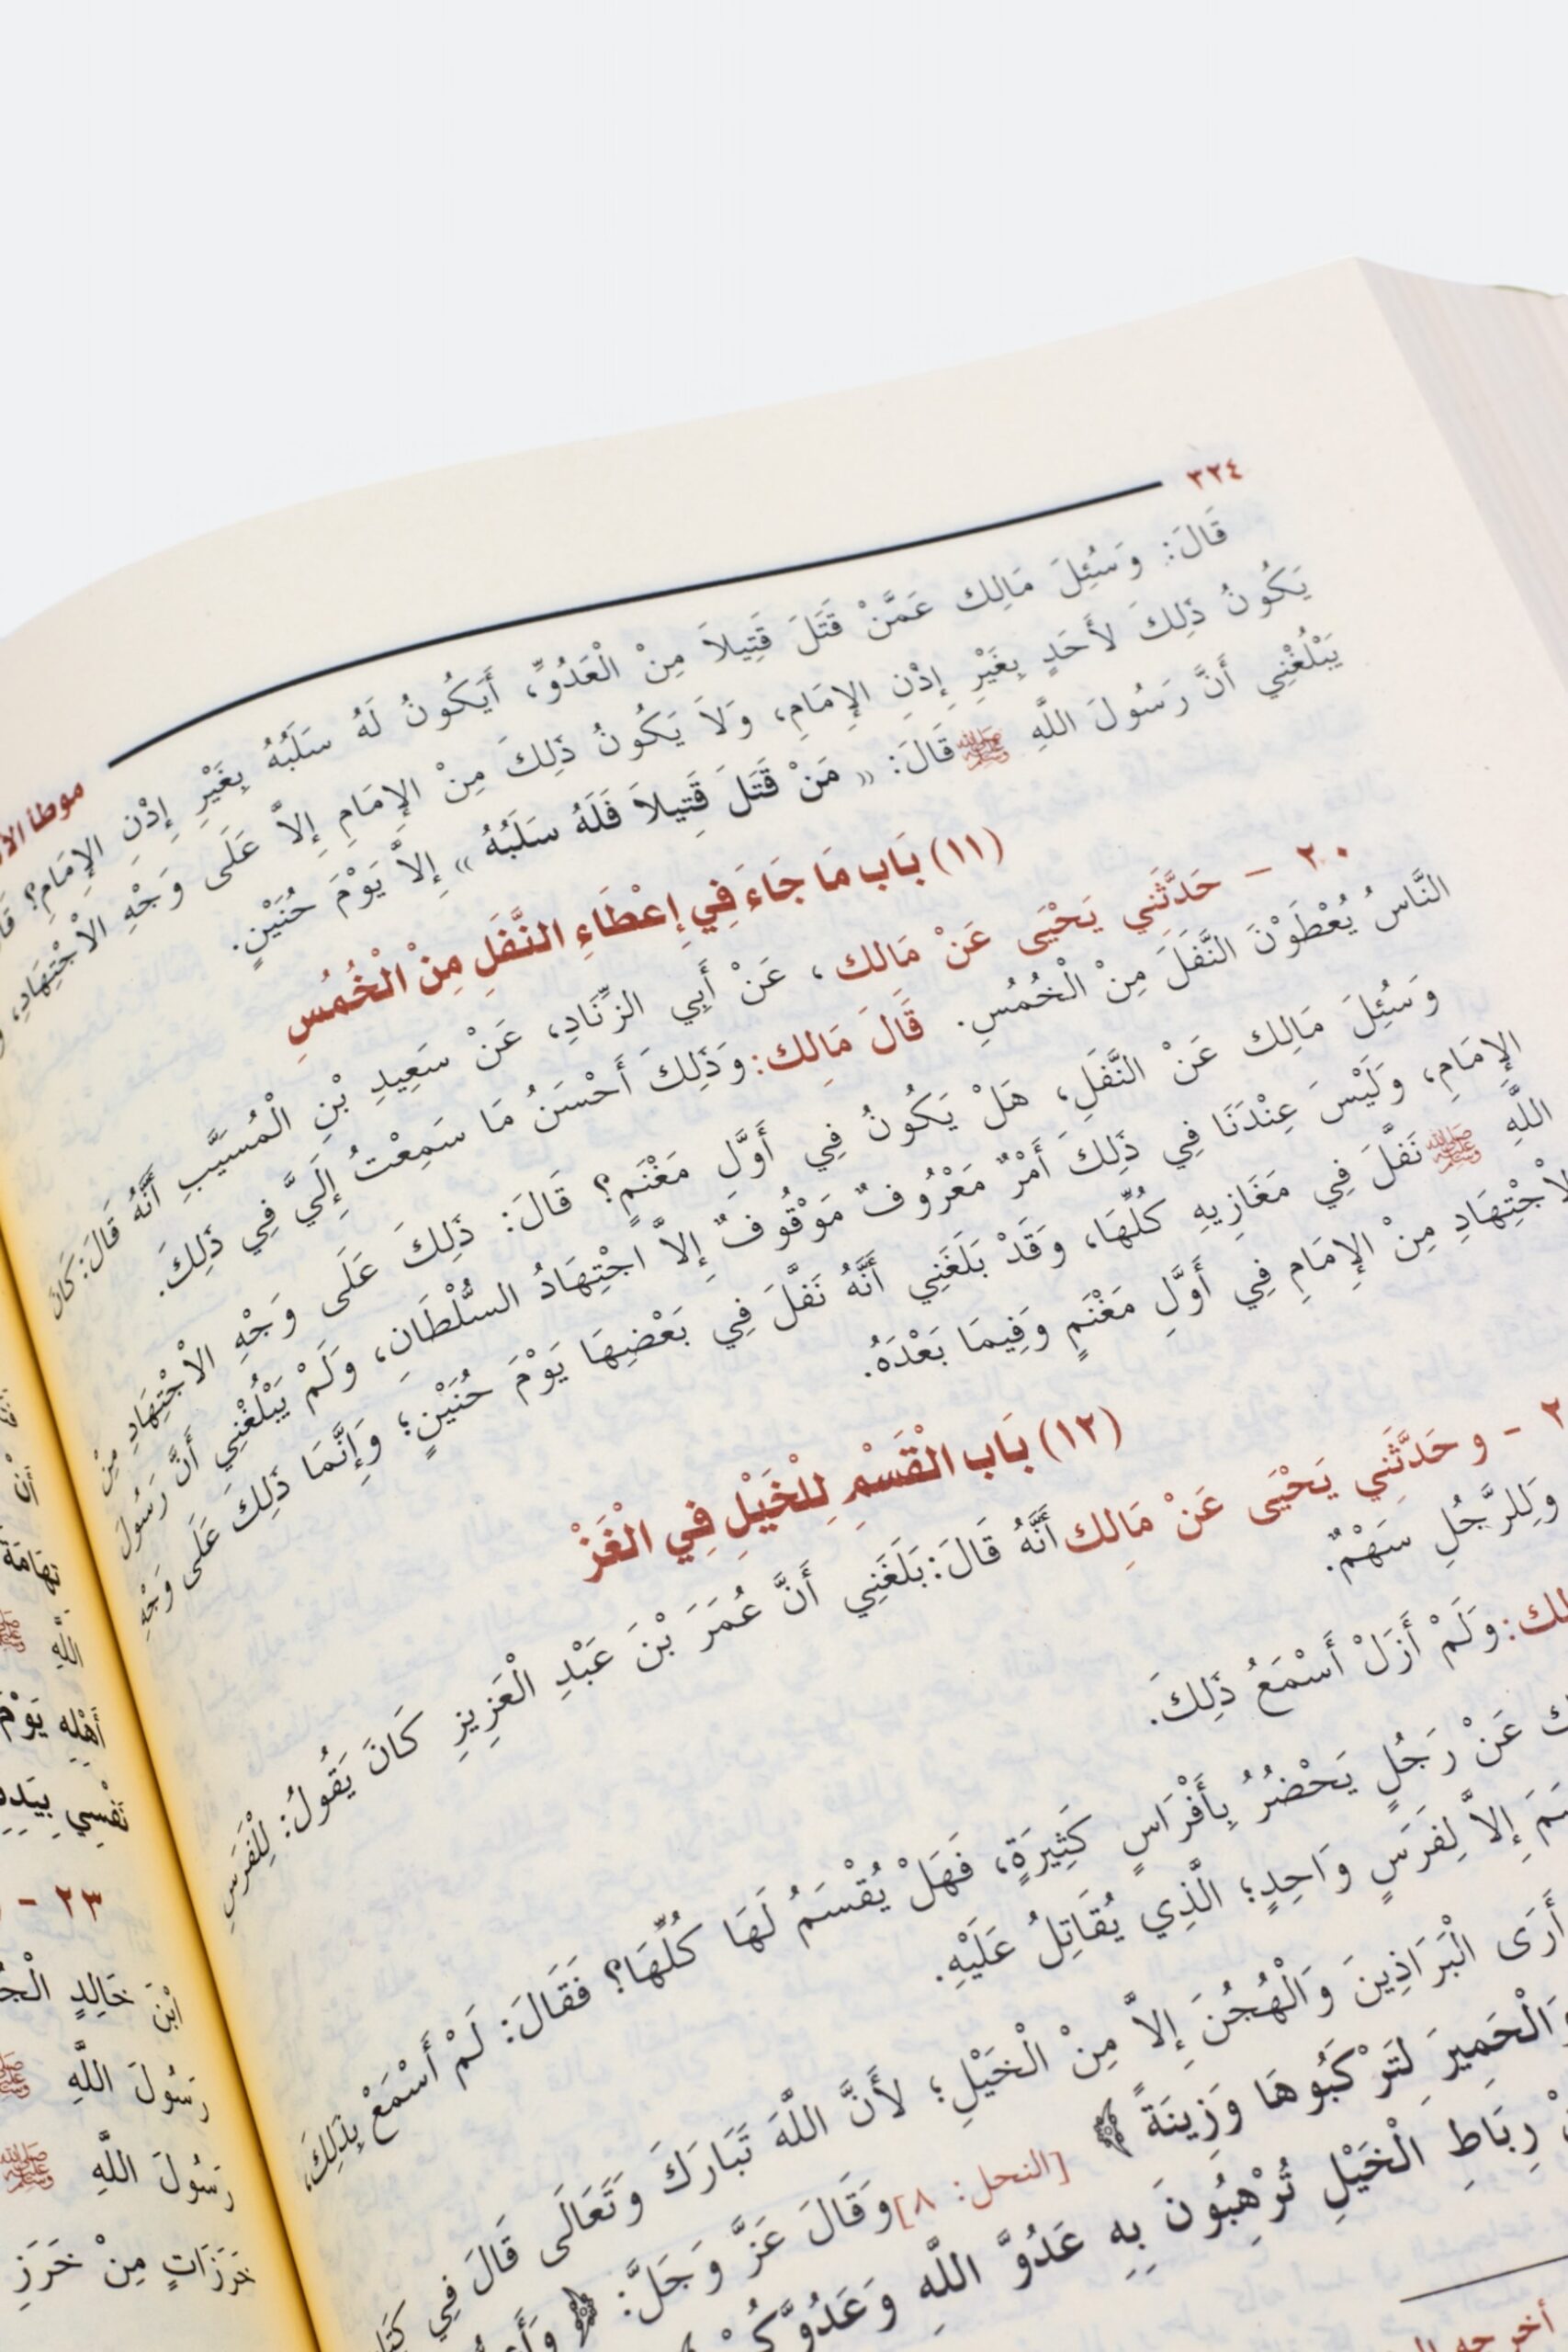 ٣٢٤
موطأ
قَالَ: وَسُئِلَ مَالِك عَمَّنْ قَتَلَ قَتِيلاً مِنْ الْعَدُوِّ، أَيَكُونُ لَهُ سَلَبُهُ بِغَيْرِ إِذْنِ الإِمَامِ؟
يَكُونُ ذَلِكَ لأَحَدٍ بِغَيْرِ إِذْنِ الإِمَامِ، وَلاَ يَكُونُ ذَلِكَ مِنْ الإِمَامِ إِلاَّ عَلَى وَجْهِ الاْجْتِهَادِ،
يَبْلُغْنِي أَنَّ رَسُولَ اللَّهِ ﷺ قَالَ: « مَنْ قَتَلَ قَتِيلاً فَلَهُ سَلَبُهُ » إِلاَّ يَوْمَ حُنَيْنٍ.
(١١) بَاب مَا جَاءَ فِي إِعْطَاءِ النَّفَلِ مِنْ الْخُمُسِ
٢٠ - حَدَّثَنِي يَحْيَى عَنْ مَالِك، عَنْ أَبِي الزِّنَادِ، عَنْ سَعِيدِ بْنِ الْمُسَيَّبِ أَنَّهُ قَالَ: كَانَ
النَّاسُ يُعْطَوْنَ النَّفَلَ مِنْ الْخُمُسِ. قَالَ مَالِك: وَذَلِكَ أَحْسَنُ مَا سَمِعْتُ إِلَيَّ فِي ذَلِكَ.
وَسُئِلَ مَالِك عَنْ النَّفَلِ، هَلْ يَكُونُ فِي أَوَّلِ مَغْنَمٍ؟ قَالَ: ذَلِكَ عَلَى وَجْهِ الاْجْتِهَادِ مِنْ
الإِمَامِ، وَلَيْسَ عِنْدَنَا فِي ذَلِكَ أَمْرٌ مَعْرُوفٌ مَوْقُوفٌ إِلاَّ اجْتِهَادُ السُّلْطَانِ، وَلَمْ يَبْلُغْنِي أَنَّ رَسُولَ
اللَّهِ ﷺ نَفَّلَ فِي مَغَازِيهِ كُلِّهَا، وَقَدْ بَلَغَنِي أَنَّهُ نَفَّلَ فِي بَعْضِهَا يَوْمَ حُنَيْنٍ؛ وَإِنَّمَا ذَلِكَ عَلَى وَجْهِ
الاْجْتِهَادِ مِنْ الإِمَامِ فِي أَوَّلِ مَغْنَمٍ وَفِيمَا بَعْدَهُ.
(١٢) بَاب الْقَسْمِ لِلْخَيْلِ فِي الْغَزْ
- و حَدَّثَنِي يَحْيَى عَنْ مَالِك أَنَّهُ قَالَ: بَلَغَنِي أَنَّ عُمَرَ بْنَ عَبْدِ الْعَزِيزِ كَانَ يَقُولُ: لِلْفَرَسِ
وَلِلرَّجُلِ سَهْمٌ.
وَلَمْ أَزَلْ أَسْمَعُ ذَلِكَ.
عَنْ رَجُلٍ يَحْضُرُ بِأَفْرَاسٍ كَثِيرَةٍ، فَهَلْ يُقْسَمُ لَهَا كُلِّهَا؟ فَقَالَ: لَمْ أَسْمَعْ بِذَلِكَ،
إِلاَّ لِفَرَسٍ وَاحِدٍ؛ الَّذِي يُقَاتِلُ عَلَيْهِ.
أَرَى الْبَرَاذِينَ وَالْهُجُنَ إِلاَّ مِنْ الْخَيْلِ؛ لأَنَّ اللَّهَ تَبَارَكَ وَتَعَالَى قَالَ فِي
وَالْحَمِيرَ لِتَرْكَبُوهَا وَزِينَةً ﴾ [النحل: ٨] وَقَالَ عَزَّ وَجَلَّ: ﴿
رِبَاطِ الْخَيْلِ تُرْهِبُونَ بِهِ عَدُوَّ اللَّهِ
أَهْلِهِ يَوْمَ
نَفْسِي
٢٣ -
ابْنَ خَالِدٍ
رَسُولَ اللَّهِ ﷺ
رَسُولَ اللَّهِ ﷺ
خَرَزَاتٍ مِنْ خَرَزِ